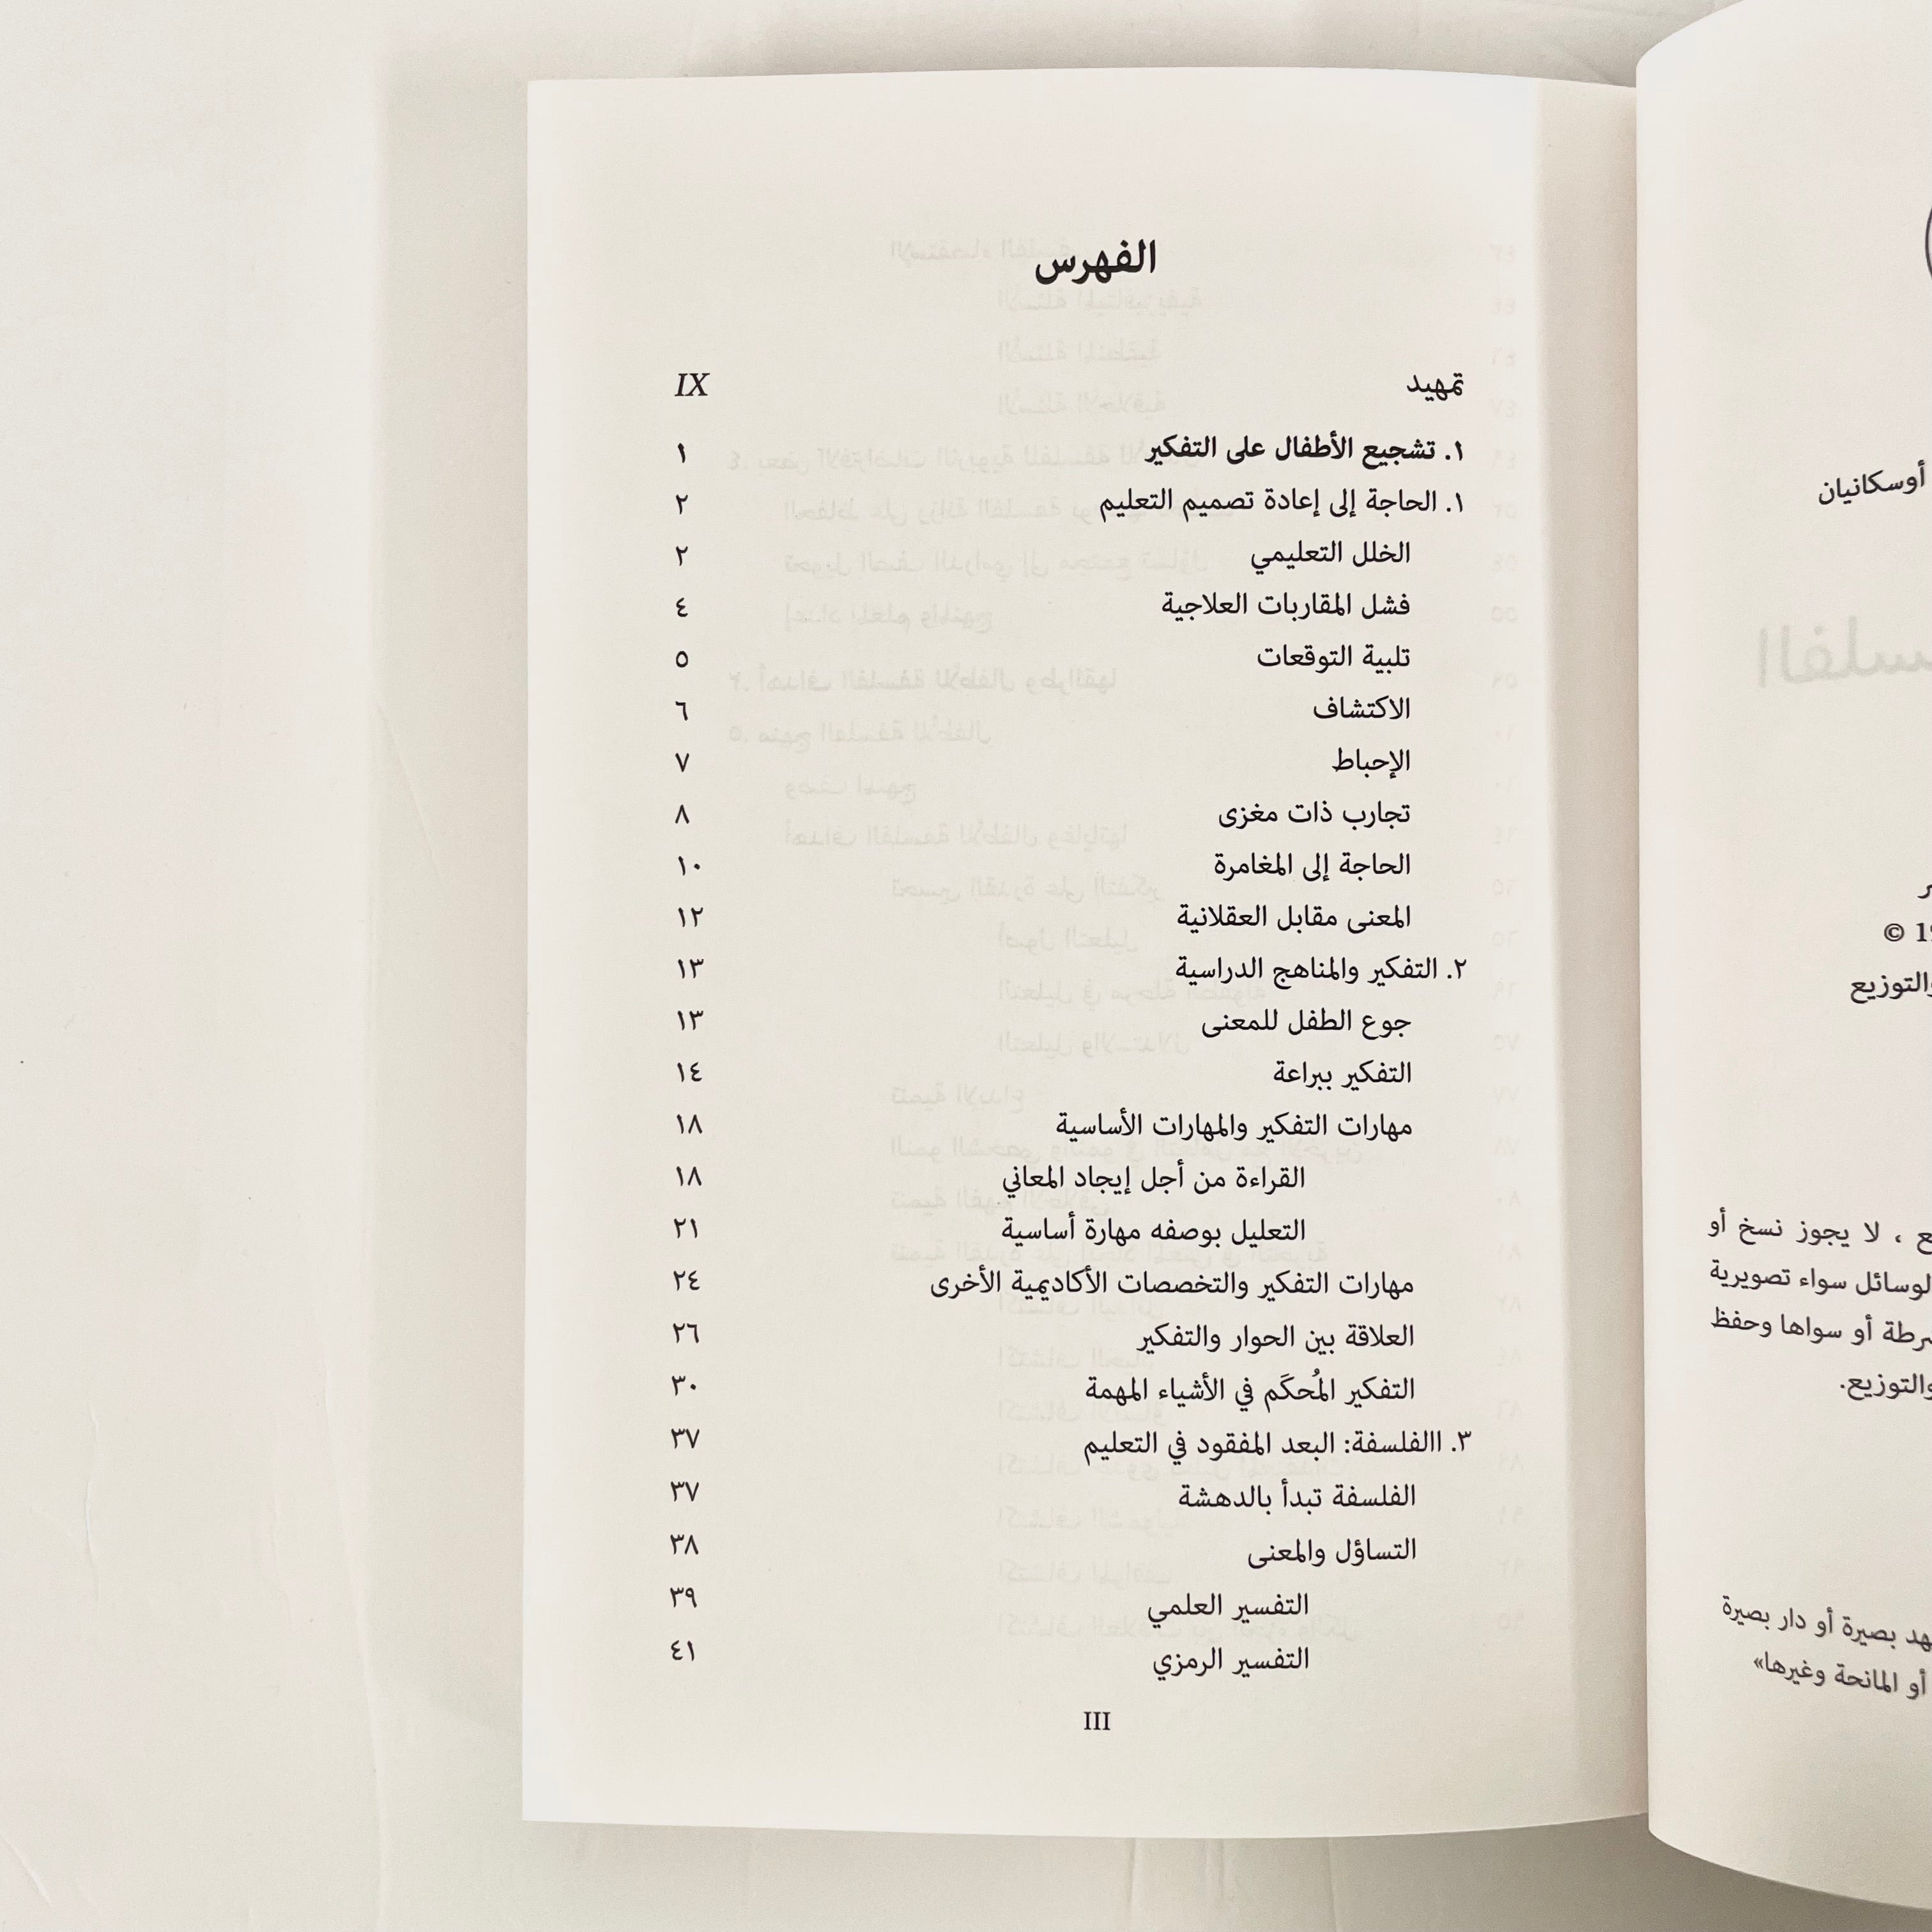 أوسكانيان
© 19
والتوزيع
ع ، لا يجوز نسخ أو
لوسائل سواء تصويرية
أو سواها وحفظ
والتوزيع.
بصيرة أو دار بصيرة
أو المانحة وغيرها»
الفهرس
تمهيد IX
١. تشجيع الأطفال على التفكير ١
١. الحاجة إلى إعادة تصميم التعليم ٢
الخلل التعليمي ٢
فشل المقاربات العلاجية ٤
تلبية التوقعات ٥
الاكتشاف ٦
الإحباط ٧
تجارب ذات مغزى ٨
الحاجة إلى المغامرة ١٠
المعنى مقابل العقلانية ١٢
٢. التفكير والمناهج الدراسية ١٣
جوع الطفل للمعنى ١٣
التفكير ببراعة ١٤
مهارات التفكير والمهارات الأساسية ١٨
القراءة من أجل إيجاد المعاني ١٨
التعليل بوصفه مهارة أساسية ٢١
مهارات التفكير والتخصصات الأكاديمية الأخرى ٢٤
العلاقة بين الحوار والتفكير ٢٦
التفكير المُحكَم في الأشياء المهمة ٣٠
٣. االفلسفة: البعد المفقود في التعليم ٣٧
الفلسفة تبدأ بالدهشة ٣٧
التساؤل والمعنى ٣٨
التفسير العلمي ٣٩
التفسير الرمزي ٤١
III